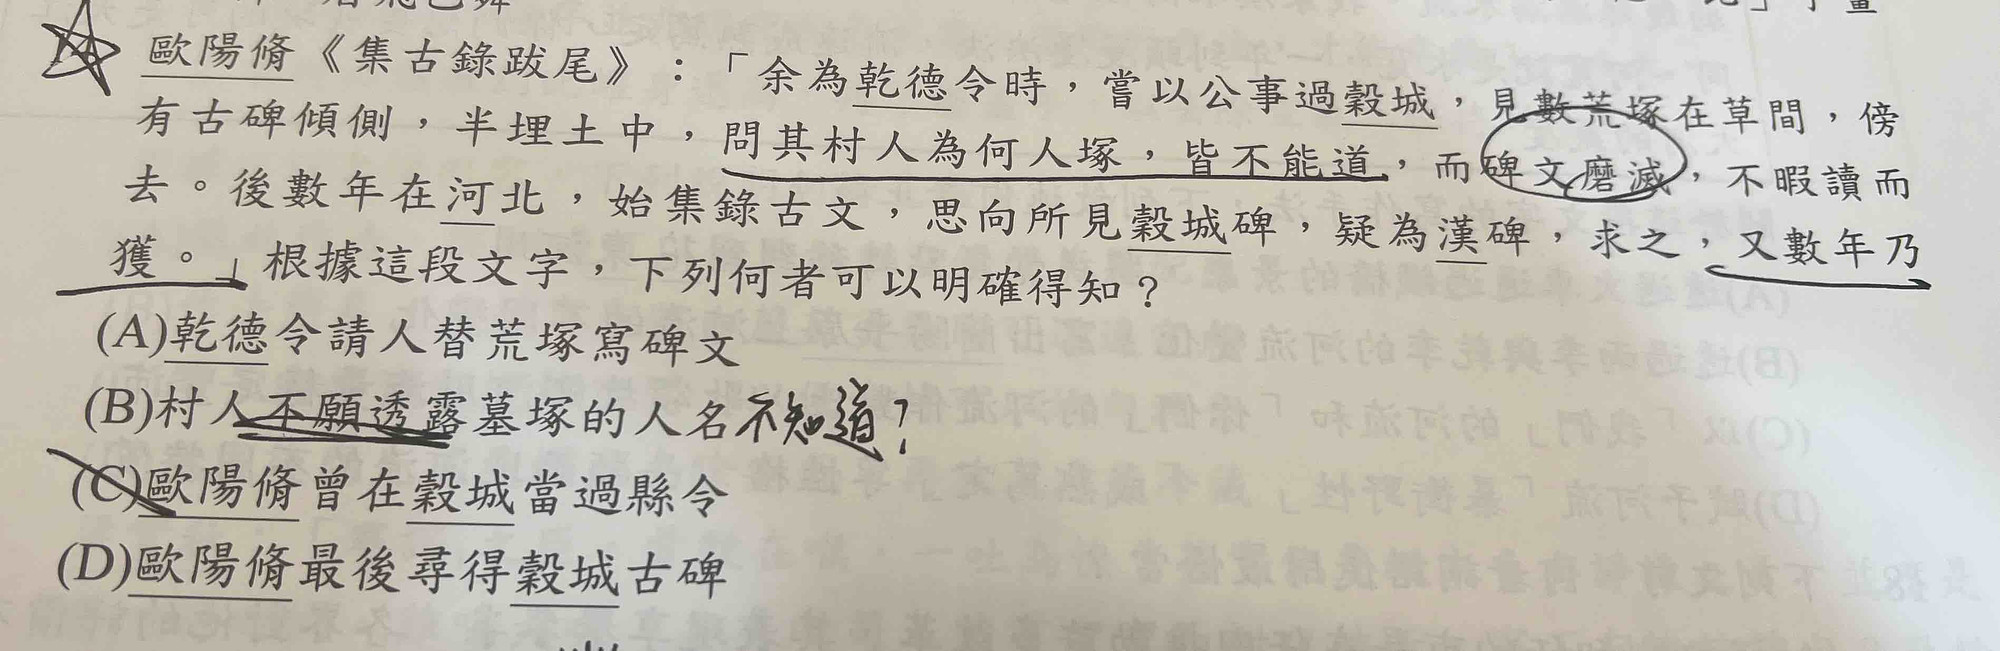 歐陽脩《集古錄跋尾》：「余為乾德令時，嘗以公事過穀城，見數荒塚在草間，傍
有古碑傾側，半埋土中，問其村人為何人塚，皆不能道，而碑文磨滅，不暇讀而
去。後數年在河北，始集錄古文，思向所見穀城碑，疑為漢碑，求之，又數年乃
獲。」根據這段文字，下列何者可以明確得知？
(A)乾德令請人替荒塚寫碑文
(B)村人不願透露墓塚的人名不知道？
(C)歐陽脩曾在穀城當過縣令
(D)歐陽脩最後尋得穀城古碑